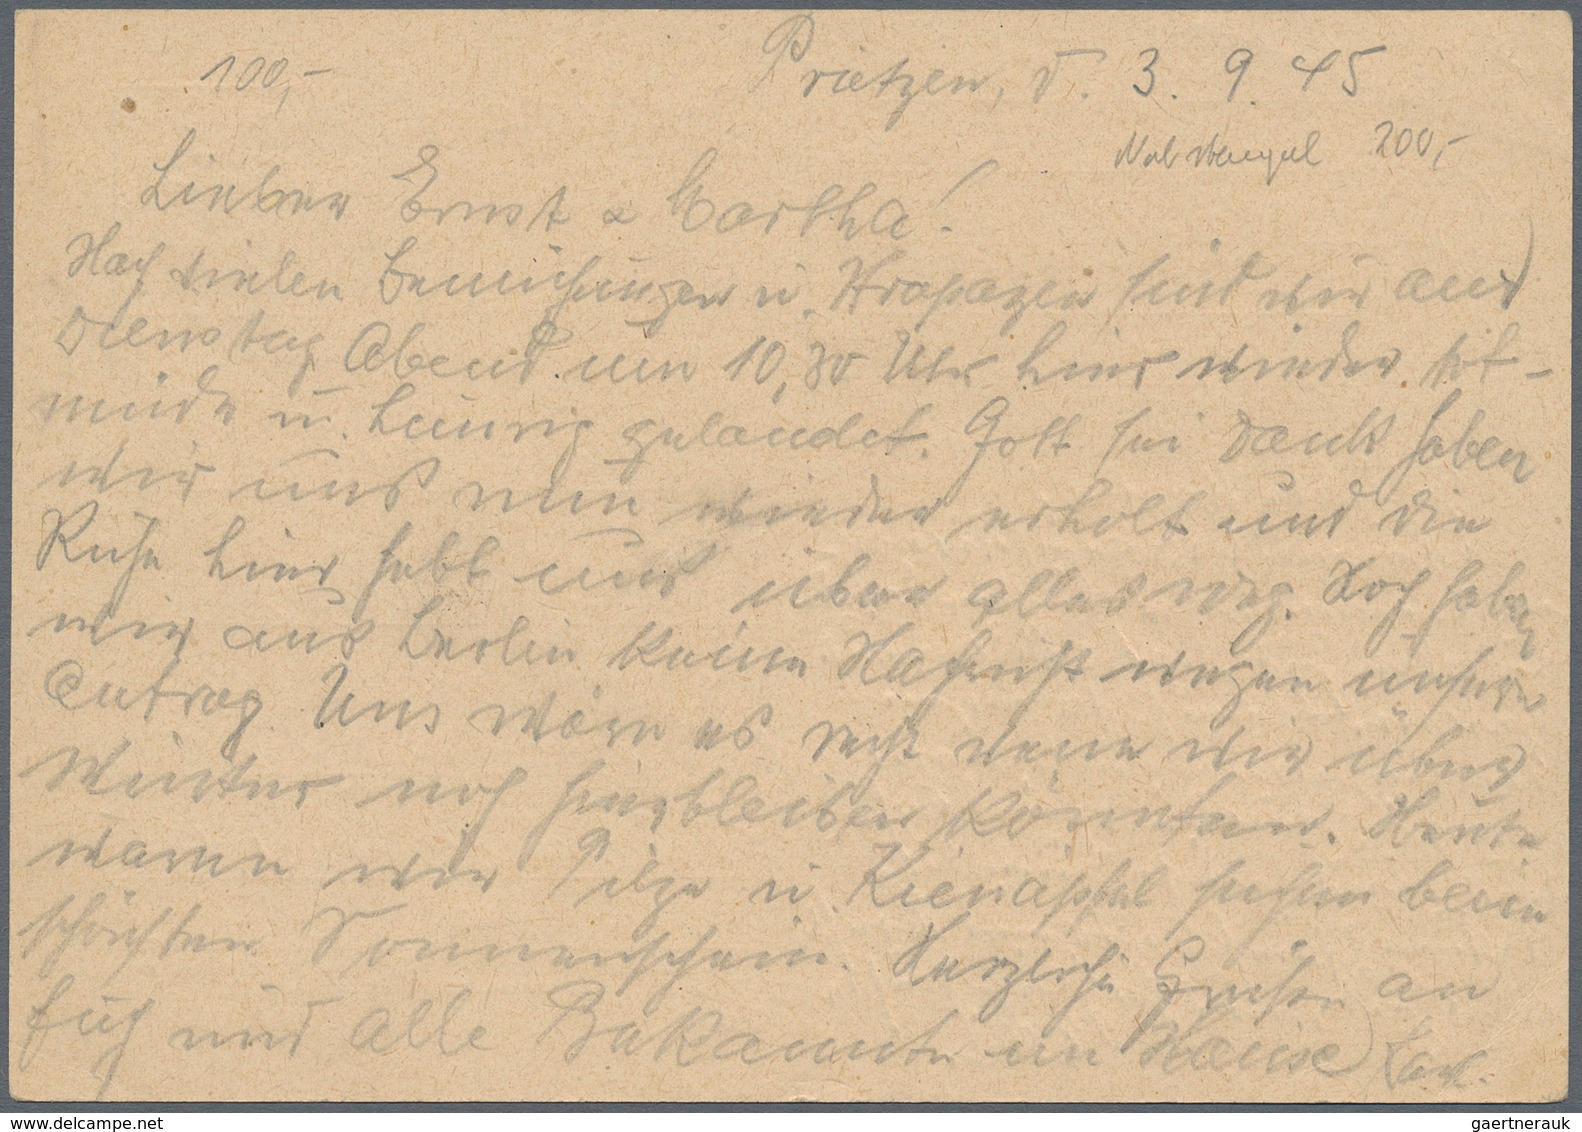 100,-
Prietzen, d. 3. 9. 45
200,-
Lieber Ernst & Martha!
Nach vielen Bemühungen u. Strapazen sind wir am
Dienstag Abend um 10,30 Uhr hier wieder tot-
müde u. hungrig gelandet. Gott sei Dank haben
wir uns nun wieder erholt und die
Ruhe hier hebt uns über alles weg. Noch haben
wir aus Berlin keine Nachricht wegen unsern
Antrag. Uns wäre es recht wenn wir über
Winter noch hierbleiben könnten. Heute
waren wir Pilze u Kienäpfel suchen beim
schönsten Sonnenschein. Herzliche Grüße an
Euch und alle Bekannte im Hause
www.delcampe.net
gaertnerauk